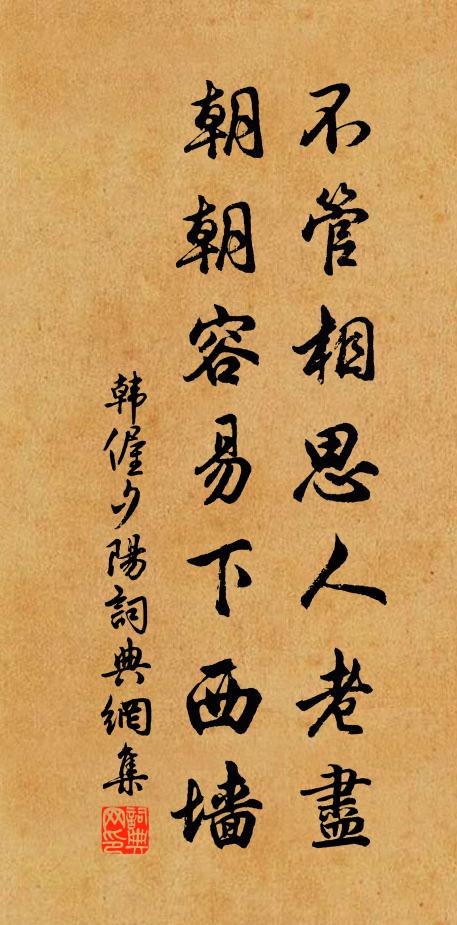 不管相思人老盡
朝朝容易下西墻
韩偓夕陽詞典網集
詞典网印